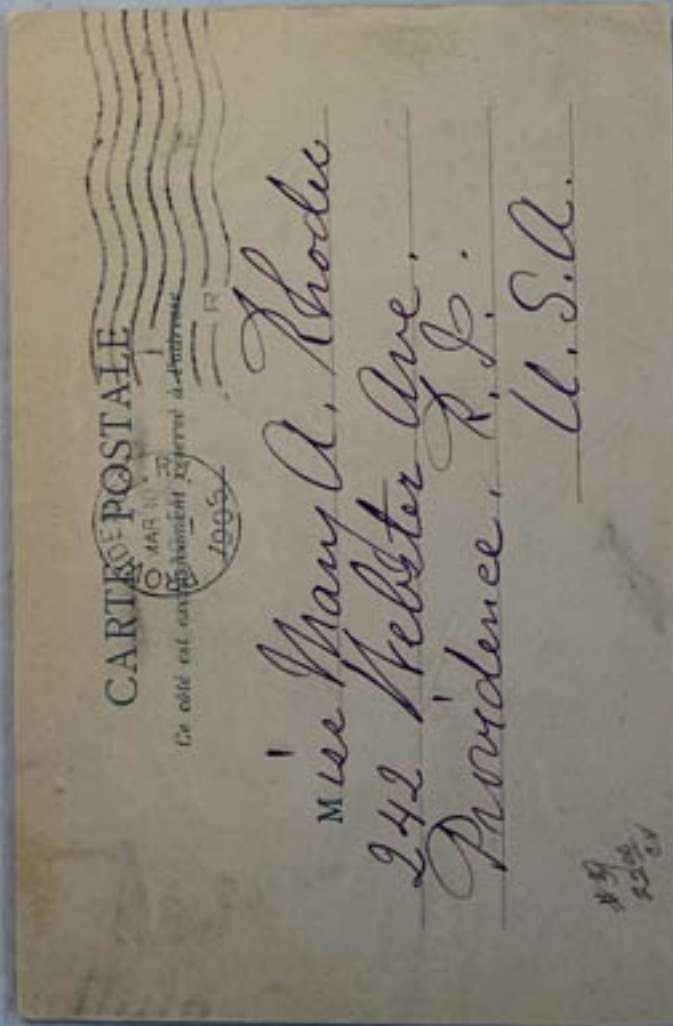 CARTE POSTALE
Ce côté est exclusivement réservé à l'adresse
MAR 10
Miss Mary A. Rhodes
242 Webster Ave.
Providence, R.I.
U.S.A.